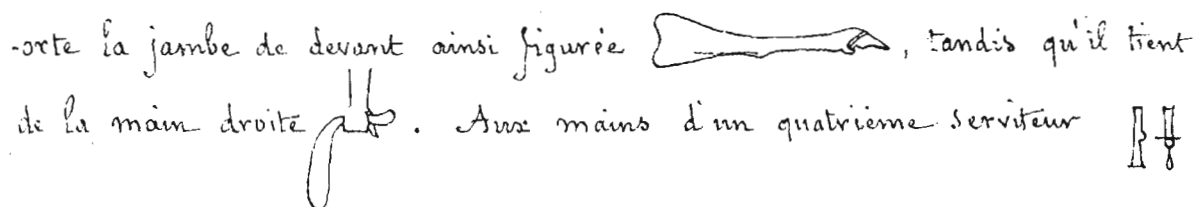 -orte la jambe de devant ainsi figurée , tandis qu'il tient
de la main droite . Aux mains d'un quatrième serviteur